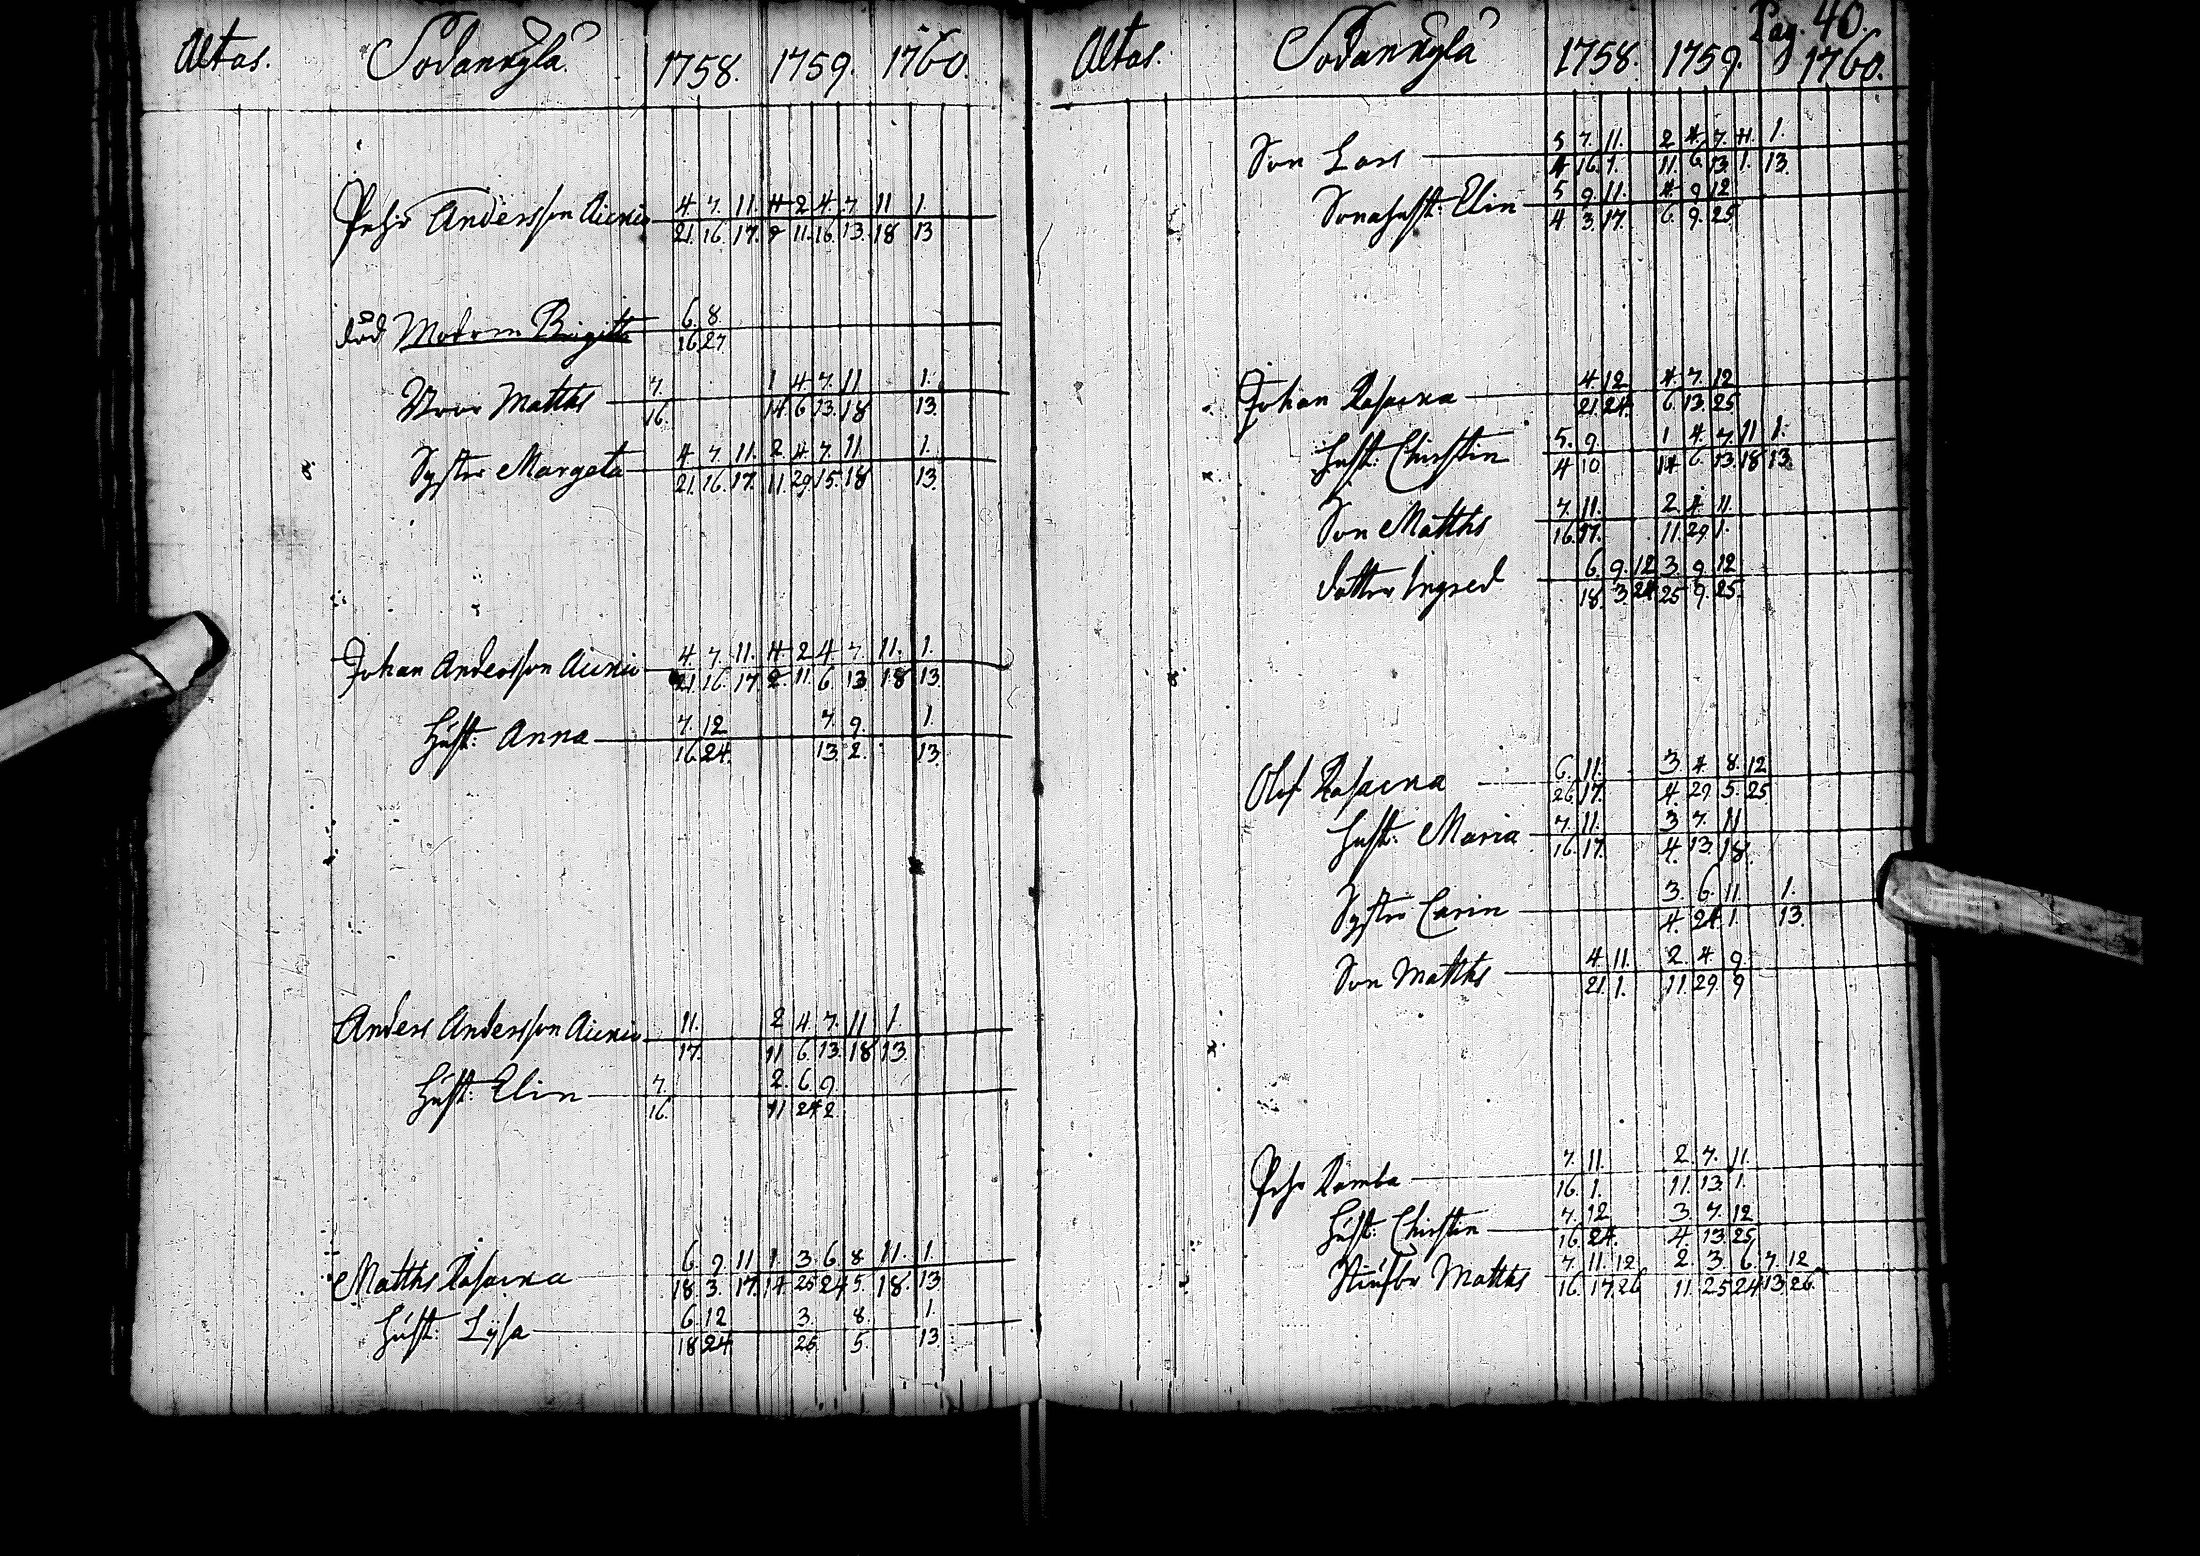 Altas. Sodankylä 1758. 1759. 1760.
Pehr Andersson Aickio 4. 7. 11. 4 2 4. 7. 11 1.
21. 16. 17. 2 11. 16. 13. 18 13
död Modren Brigitta 6. 8.
16. 27.
Bror Matths 7. 1 4. 7. 11 1.
16. 14 6. 13. 18 13.
Syster Margeta 4 7. 11. 2 4. 7. 11 1.
21. 16. 17. 11. 29 15. 18 13.
Johan Andersson Aickio 4. 7. 11. 4 2 4 7. 11. 1.
21. 16. 17. 2. 11. 6. 13 18 13
Hust: Anna 7. 12 7. 9. 1.
16. 24. 13. 2. 13.
Anders Andersson Aickio 11. 2 4. 7. 11 1.
17. 11 6. 13. 18 13.
Hust: Elin 7. 2. 6. 9.
16. 11 24 2.
Matths 6. 9. 11 1. 3. 6. 8 11. 1.
18. 3. 17. 14. 25 24 5. 18. 13
Hust: Lysa 6. 12 3. 8. 1.
18 24. 25 5. 13
Pag. 40.
Altas. Sodankylä 1758. 1759. 1760.
Son Lars 5 7. 11. 2 4. 7. 11 1.
4 16. 1. 11. 6. 13. 1. 13.
Sonahust: Elin 5 9. 11. 4. 9 12
4 3. 17. 6. 9. 25
Johan 4. 12 4. 7. 12
21. 24. 6. 13. 25
Hust: Chirstin 5. 9. 1 4. 7. 11 1.
4 10 14 6. 13. 18 13
Son Matths 7. 11. 2. 4 11.
16. 17. 11. 29. 1.
Dotter Ingred 6. 9. 12 3. 9. 12
18. 3. 24 25 9. 25.
Olof 6. 11. 3. 4. 8. 12
26. 17. 4. 29 5. 25
Hust: Maria 7. 11. 3 7. 11
16. 17. 4. 13. 18.
Syster Carin 3. 6. 11. 1.
4. 24. 1. 13.
Son Matths 4 11. 2. 4. 9.
21. 1. 11. 29. 9
Pehr Komba 7. 11. 2. 7. 11.
16. 1. 11. 13. 1.
Hust: Chirstin 7. 12 3. 7. 12
16. 24. 4. 13. 25
Matths 7. 11. 12 2. 3. 6 7. 12
16. 17. 26 11. 25 24 13. 26.